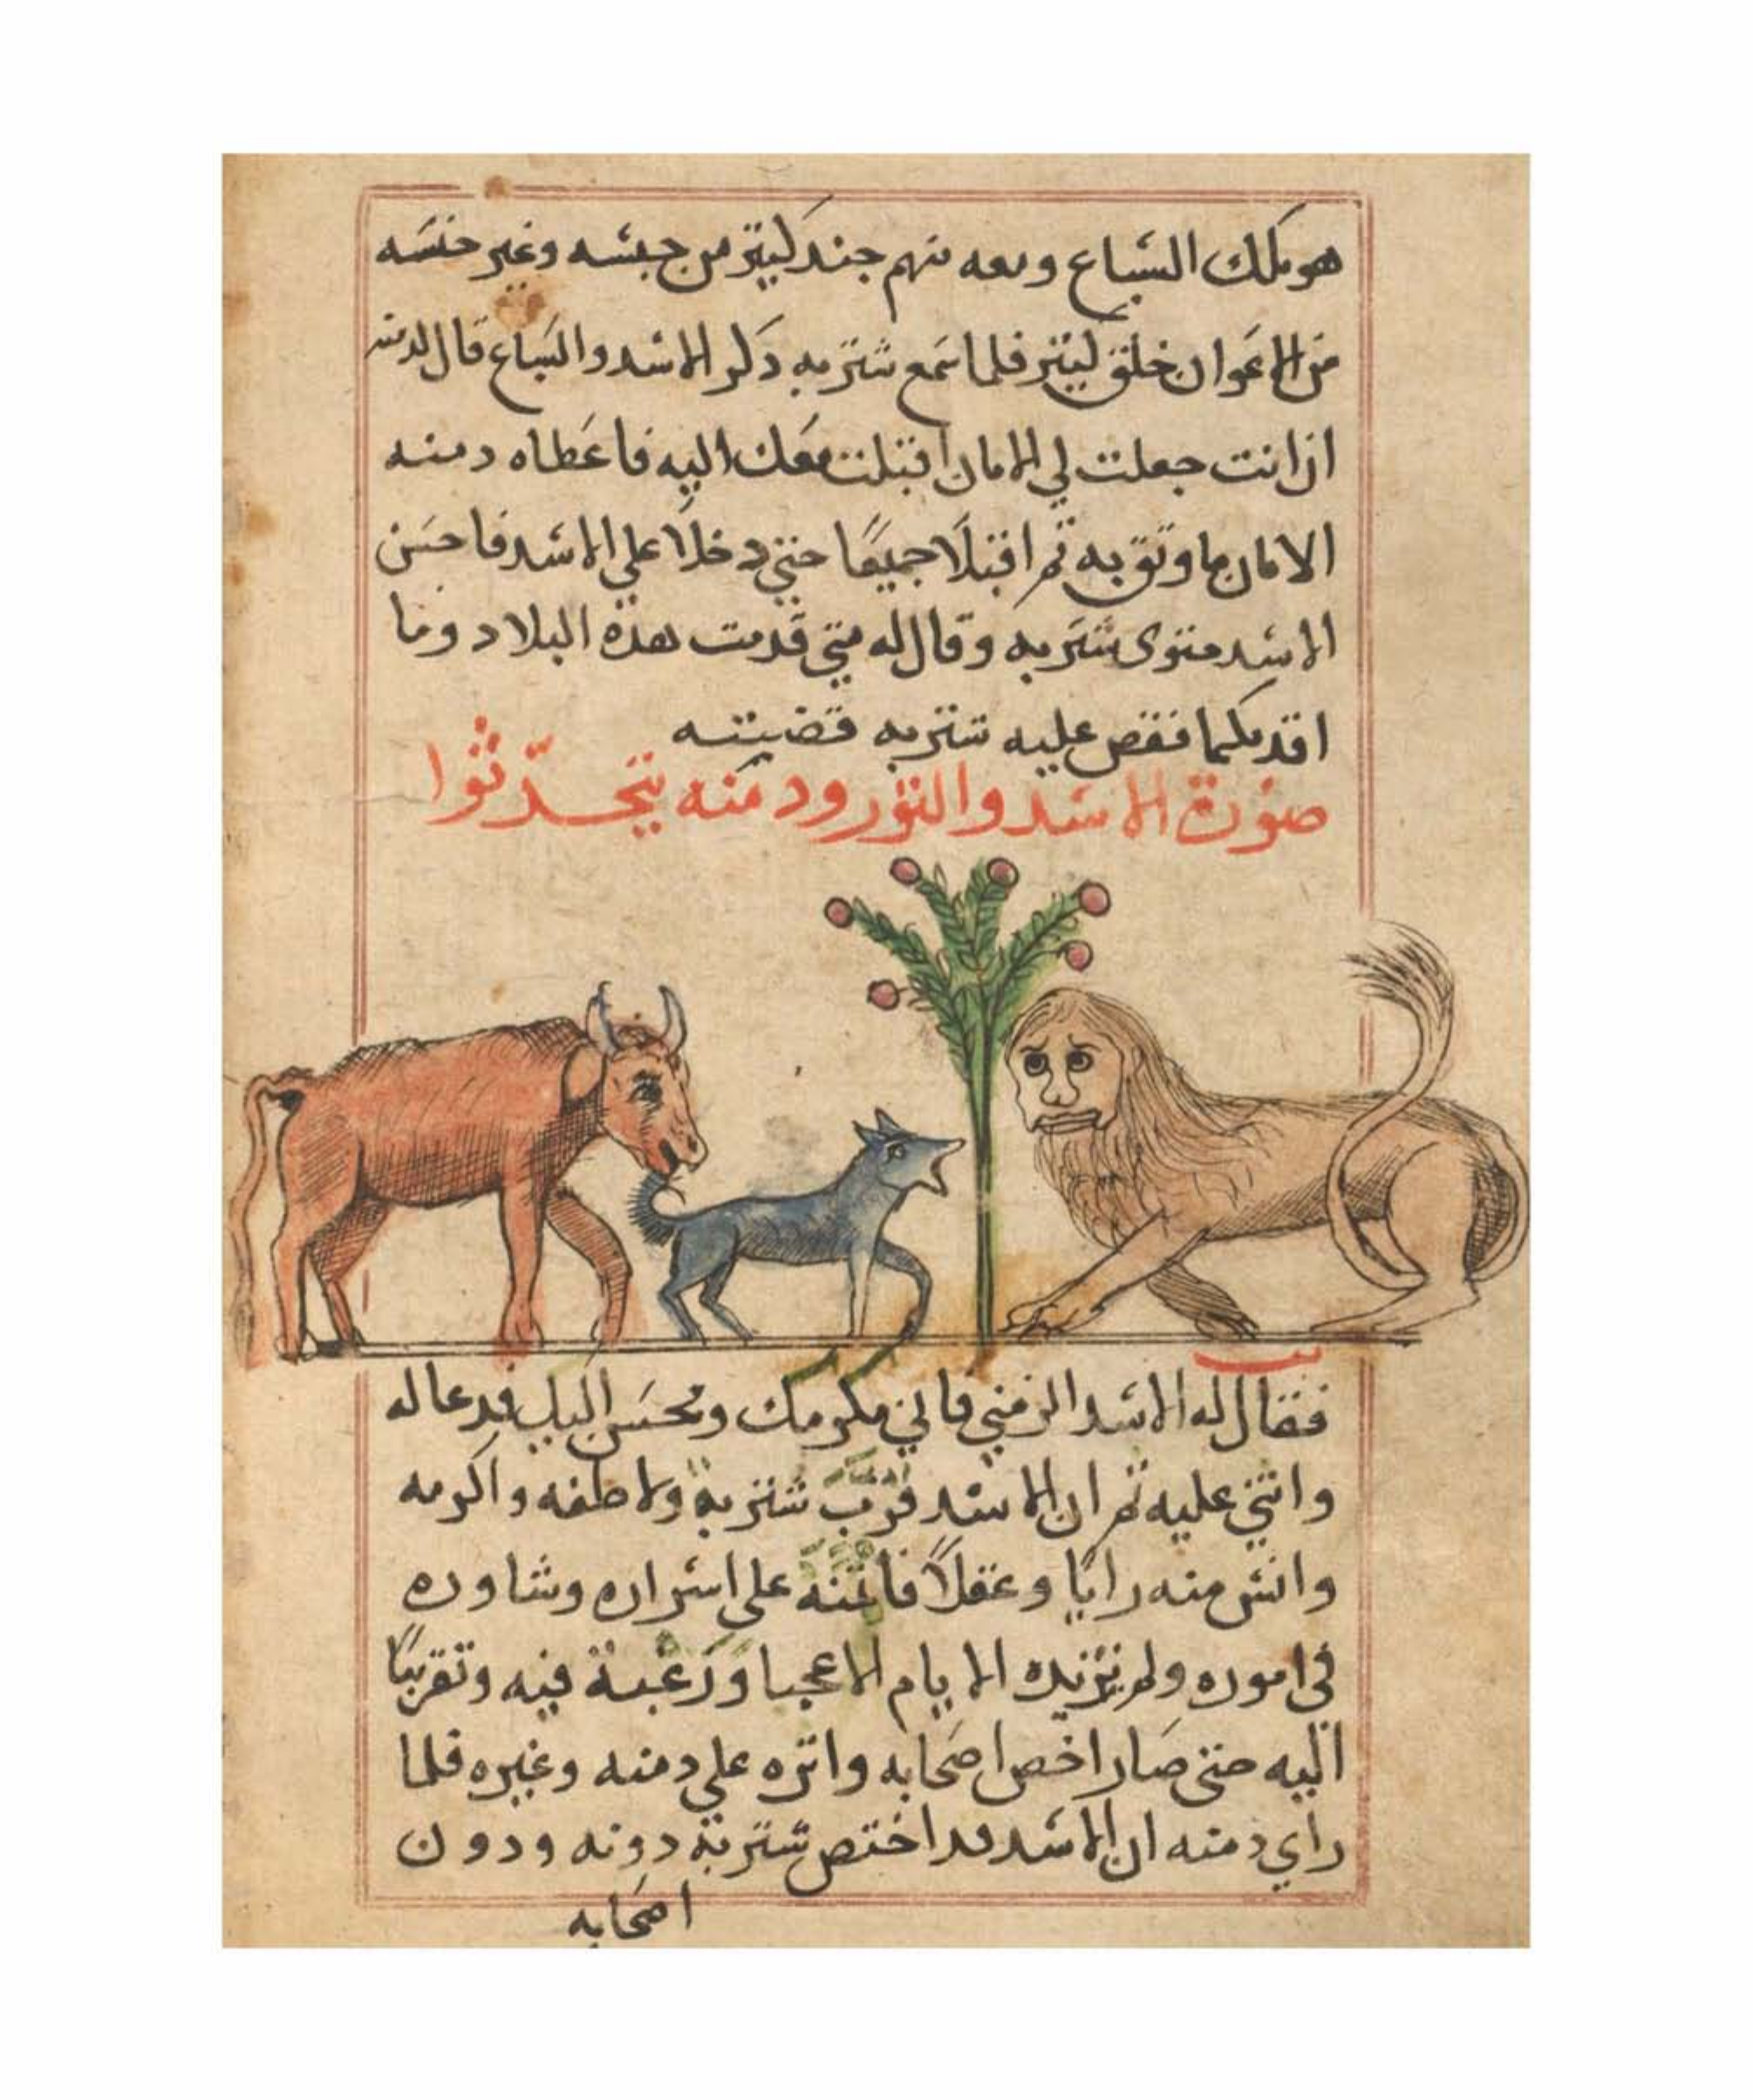 هو ملك السباع ومعه منهم جند كثير من جنسه وغير جنسه
من الاعوان خلق كثير فلما سمع شتربه ذكر الاسد والسباع قال لدمنه
ان انت جعلت لي الامان اقبلت معك اليه فاعطاه دمنه
الامان ما وثق به ثم اقبلا جميعًا حتى دخلا على الاسد فاحسن
الاسد مثوى شتربه وقال له متى قدمت هذه البلاد وما
اقدمكما فقص عليه شتربه قصيته
صورة الاسد والثور ودمنه يتحدّثوا
فقال له الاسد الزمني فاني مكرمك ومحسن اليك فدعا له
واثنى عليه ثم ان الاسد قرّب شتربة ولاطفه واكرمه
وانس منه رايًا وعقلاً فائتمنه على اسراره وشاوره
في اموره ولم تزيده الايام الا عجبا ورغبة فيه وتقريبًا
اليه حتى صار اخص اصحابه واثره على دمنه وغيره فلما
راي دمنه ان الاسد قد اختص شتربة دونه ودون
اصحابه